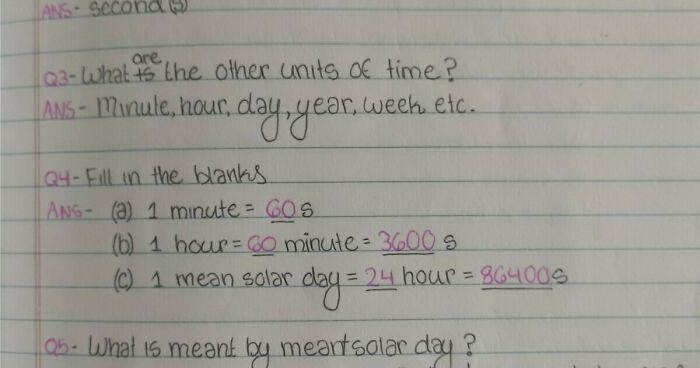 ANS- second (s)
Q3- What are the other units of time?
ANS- Minute, hour, day, year, week etc.
Q4- Fill in the blanks
ANS- (a) 1 minute = 60 s
(b) 1 hour = 60 minute = 3600 s
(c) 1 mean solar day = 24 hour = 86400s
Q5- What is meant by mean solar day?